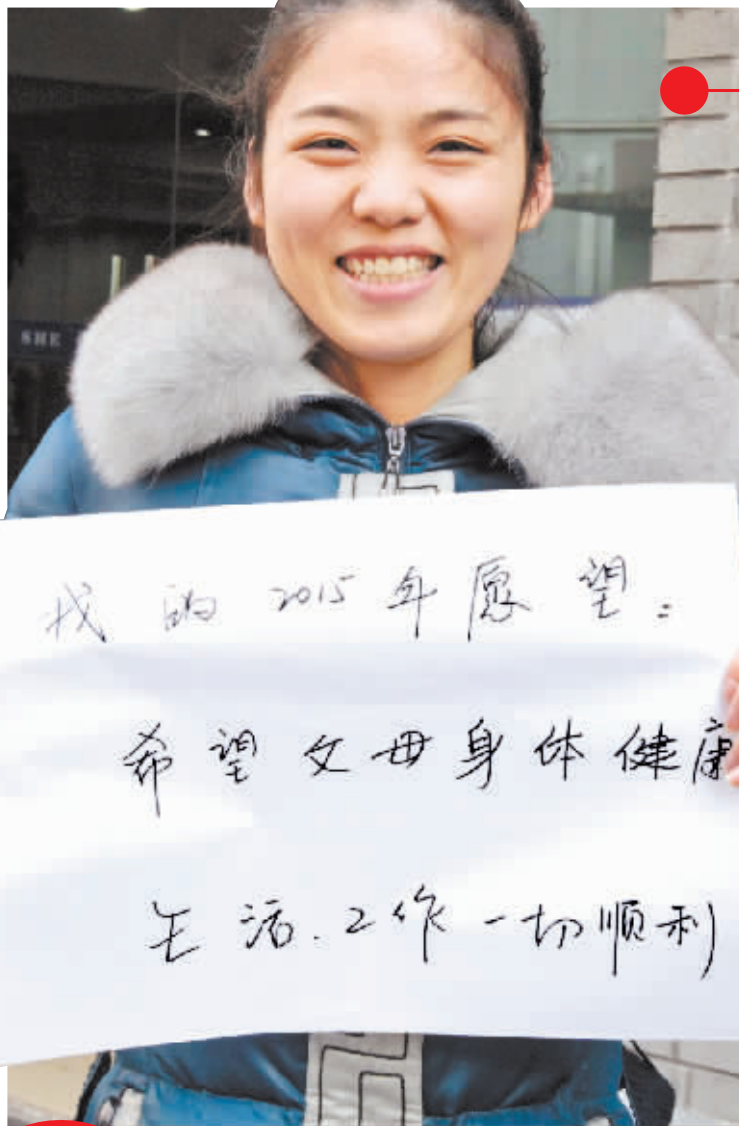 SHE
我的2015年愿望:
希望父母身体健康
生活.工作一切顺利